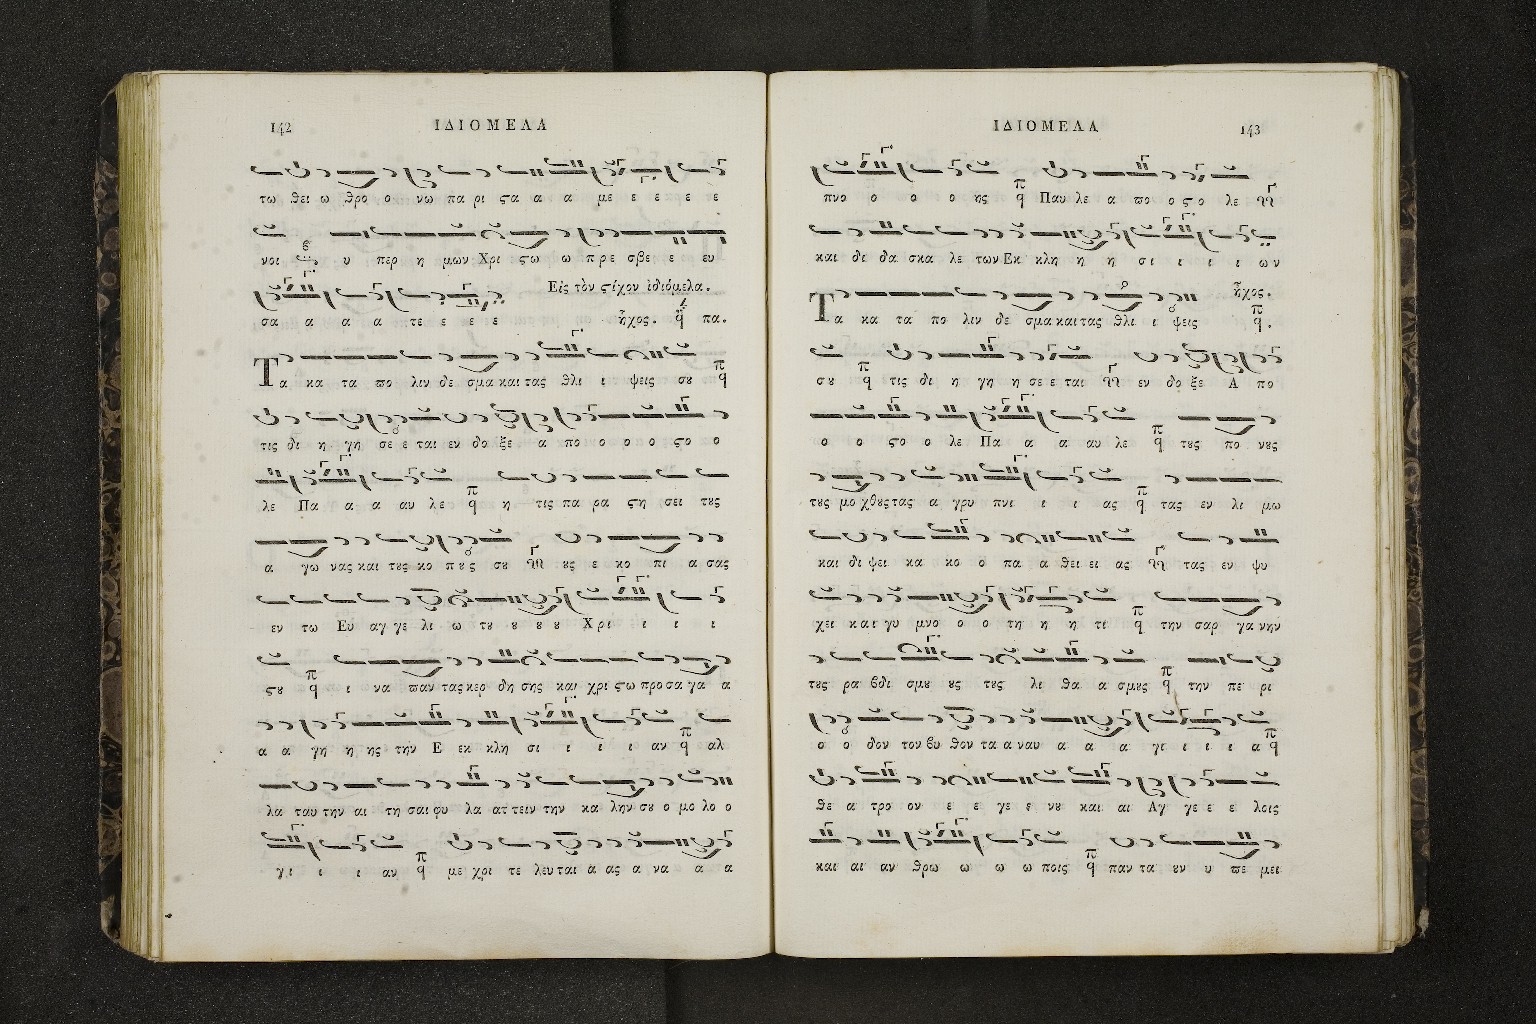 142 ΙΔΙΟΜΕΛΑ
τω θει ω θρο ο νω πα ρι ϛα α α με ε ε ε ε
νοι υ περ η μων Χρι ϛω ω πρε σβε ε ευ
Εἰς τὸν ϛίχον ἰδιόμελα.
σα α α α τε ε ε ε ἦχος. πα.
Τα κα τα πο λιν δε σμα και τας θλι ι ψεις σȣ
τις δι η γη σε ε ται εν δο ξε α πο ο ο ο ϛο ο
λε Πα α α αυ λε η τις πα ρα ϛη σει τȣς
α γω νας και τȣς κο πȣς σȣ ȣς ε κο πι α σας
εν τω Ευ αγ γε λι ω τȣ ȣ ȣ ȣ Χρι ι ι ι
ϛȣ ι να παν τας κερ δη σης και χρι ϛω προ σα γα α
α α γη η ης την Ε εκ κλη σι ι ι ι αν αλ
λα ταυ την αι τη σαι φυ λα ατ τειν την κα λην σȣ ο μο λο ο
γι ι ι αν με χρι τε λευ ται α ας α να α α
ΙΔΙΟΜΕΛΑ 143
πνο ο ο ο ης Παυ λε α πο ο ϛο λε
και δι δα σκα λε των Εκ κλη η η σι ι ι ι ων
ἦχος.
Τα κα τα πο λιν δε σμα και τας θλι ι ψεις
σȣ τις δι η γη η σε ε ται εν δο ξε Α πο
ο ο ϛο ο λε Πα α α αυ λε τȣς πο νȣς
τȣς μο χθȣς τας α γρυ πνι ι ι ας τας εν λι μω
και δι ψει κα κο ο πα α θει ει ας τας εν ψυ
χει και γυ μνο ο ο τη η η τι την σαρ γα νην
τȣς ρα βδι σμȣ ȣς τȣς λι θα α σμȣς την πε ρι
ο ο δον τον βυ θον τα α ναυ α α α γι ι ι ι α
θε α τρο ον ε ε γε ε νȣ και αι Αγ γε ε ε λοις
και αι αν θρω ω ω ω ποις παν τα ȣν υ πε μει